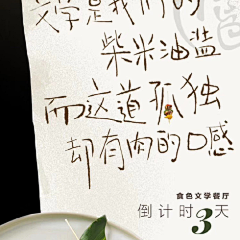 文学是我们的
柴米油盐
而这道孤独
却有肉的口感
食色文学餐厅
倒计时3天